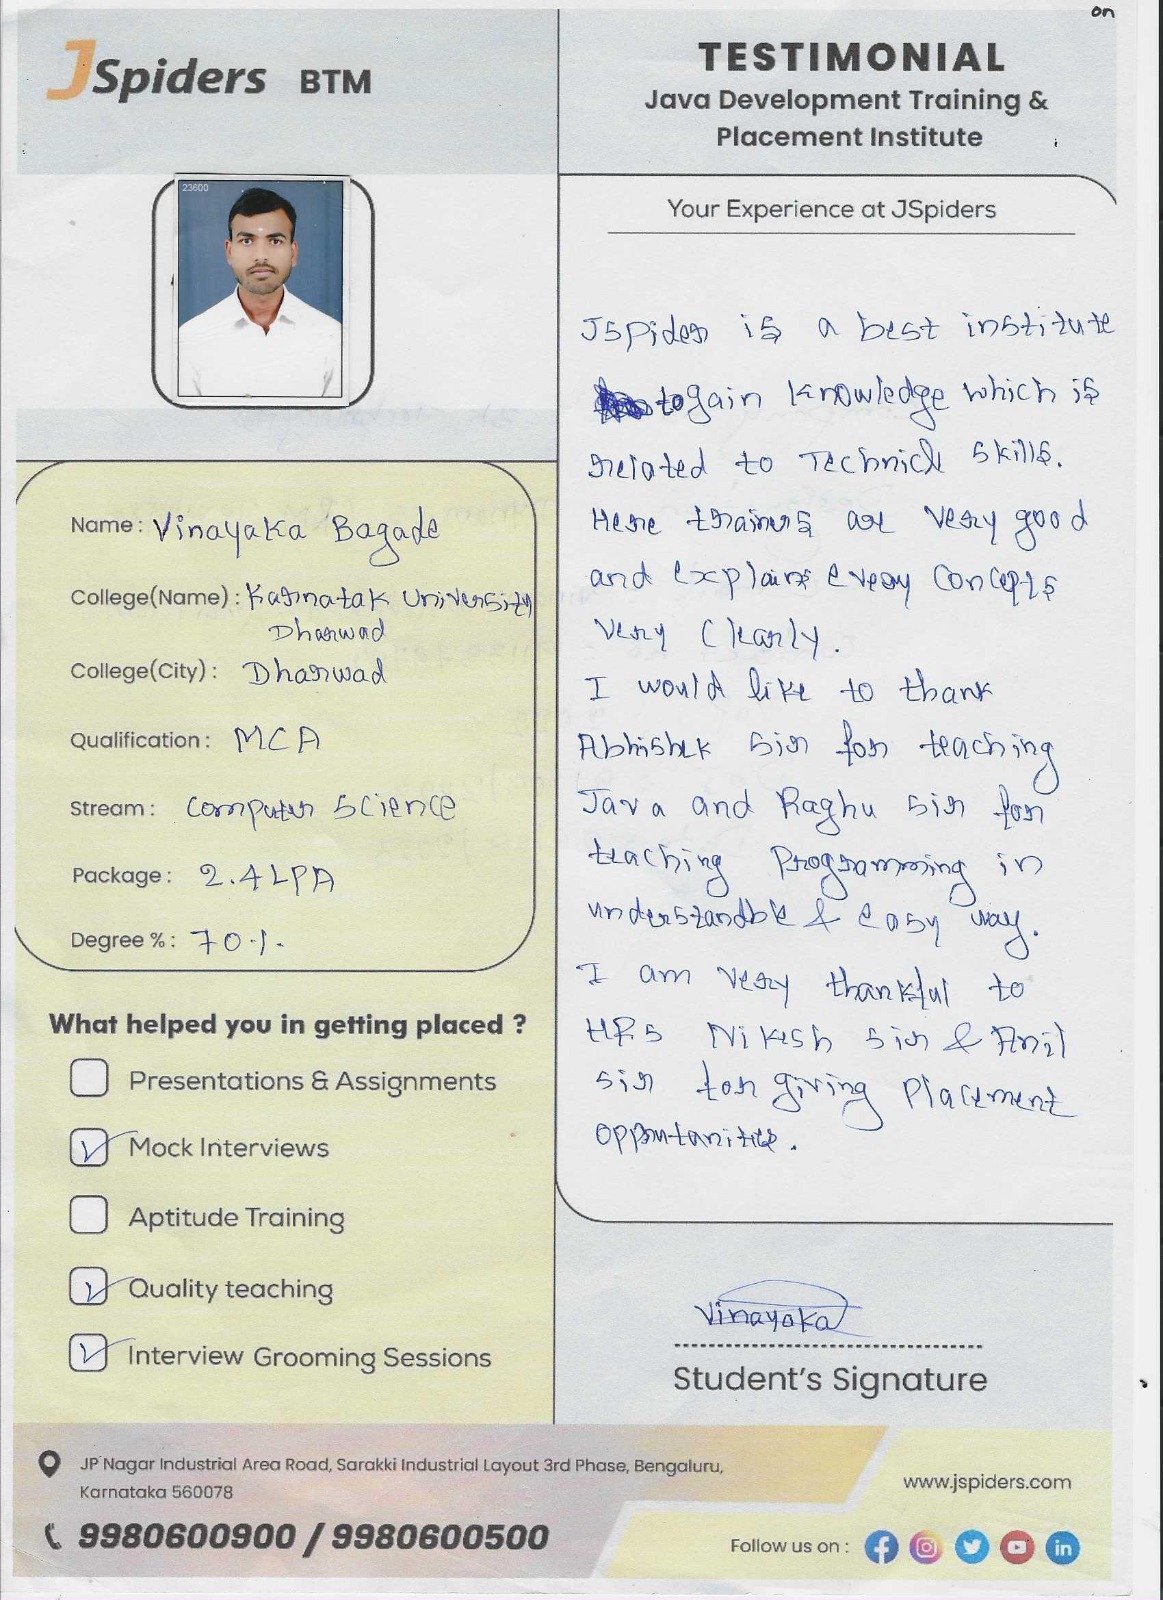 on
JSpiders BTM
TESTIMONIAL
Java Development Training &
Placement Institute
23600
Your Experience at JSpiders
JSpider is a best institute
to gain knowledge which is
related to Technicle skills.
Here trainers are very good
and explains every concepts
very clearly.
I would like to thank
Abhishek sir for teaching
Java and Raghu sir for
teaching Programming in
understandble & easy way.
I am very thankful to
HRs Nikesh sir & Anil
sir for giving placement
Name : Vinayaka Bagade
College(Name) : Karnatak University
Dharwad
College(City) : Dharwad
Qualification : MCA
Stream : Computer Science
Package : 2.4 LPA
Degree % : 70%.
What helped you in getting placed ?
Presentations & Assignments
Mock Interviews
Aptitude Training
Quality teaching
Interview Grooming Sessions
Vinayaka
Student's Signature
JP Nagar Industrial Area Road, Sarakki Industrial Layout 3rd Phase, Bengaluru,
Karnataka 560078
9980600900 / 9980600500
www.jspiders.com
Follow us on :